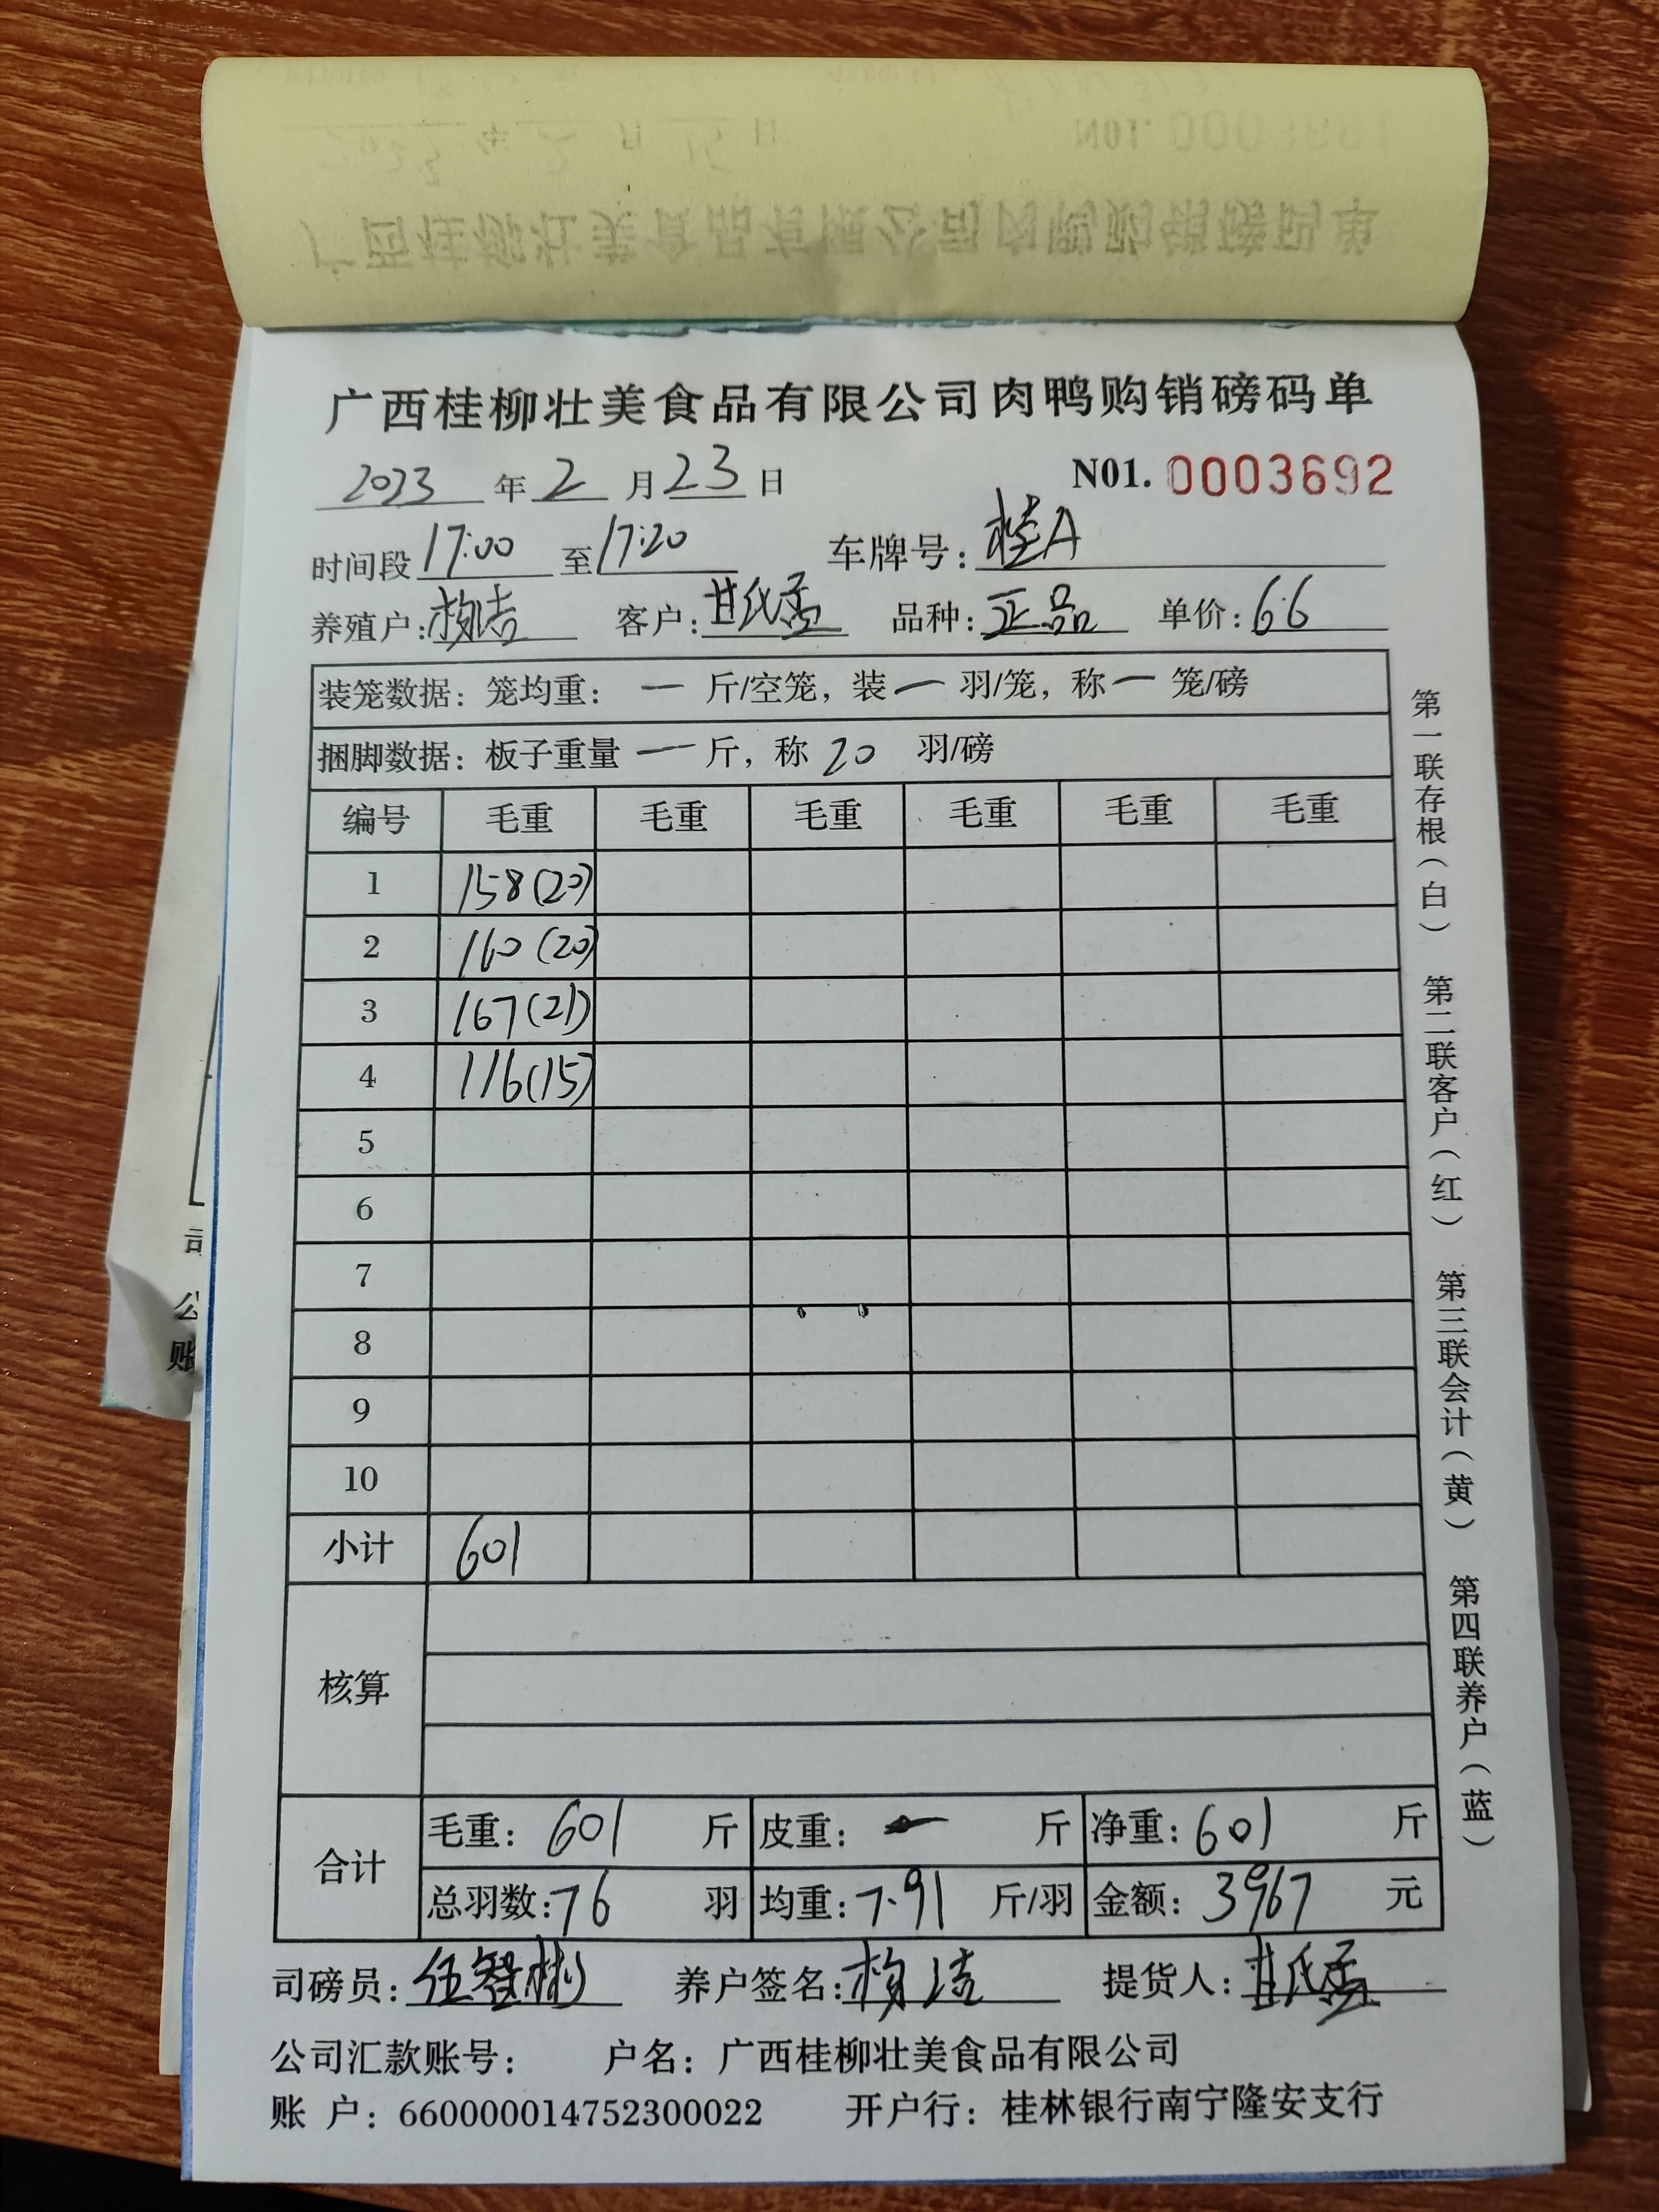 广西桂柳壮美食品有限公司肉鸭购销磅码单
2023 年 2 月 23 日 N01. 0003692
时间段 17:00 至 17:20 车牌号: 桂A
养殖户: 客户: 甘氏孟 品种: 正品 单价: 6.6
装笼数据: 笼均重: — 斤/空笼, 装 — 羽/笼, 称 — 笼/磅
捆脚数据: 板子重量 — 斤, 称 20 羽/磅
编号 毛重 毛重 毛重 毛重 毛重 毛重
1 158(20)
2 160(20)
3 167(21)
4 116(15)
5
6
7
8
9
10
小计 601
核算
合计
毛重: 601 斤 皮重: — 斤 净重: 601 斤
总羽数: 76 羽 均重: 7.91 斤/羽 金额: 3967 元
司磅员: 伍智彬 养户签名: 提货人: 甘氏孟
公司汇款账号: 户名: 广西桂柳壮美食品有限公司
账 户: 660000014752300022 开户行: 桂林银行南宁隆安支行
第一联存根(白) 第二联客户(红) 第三联会计(黄) 第四联养户(蓝)